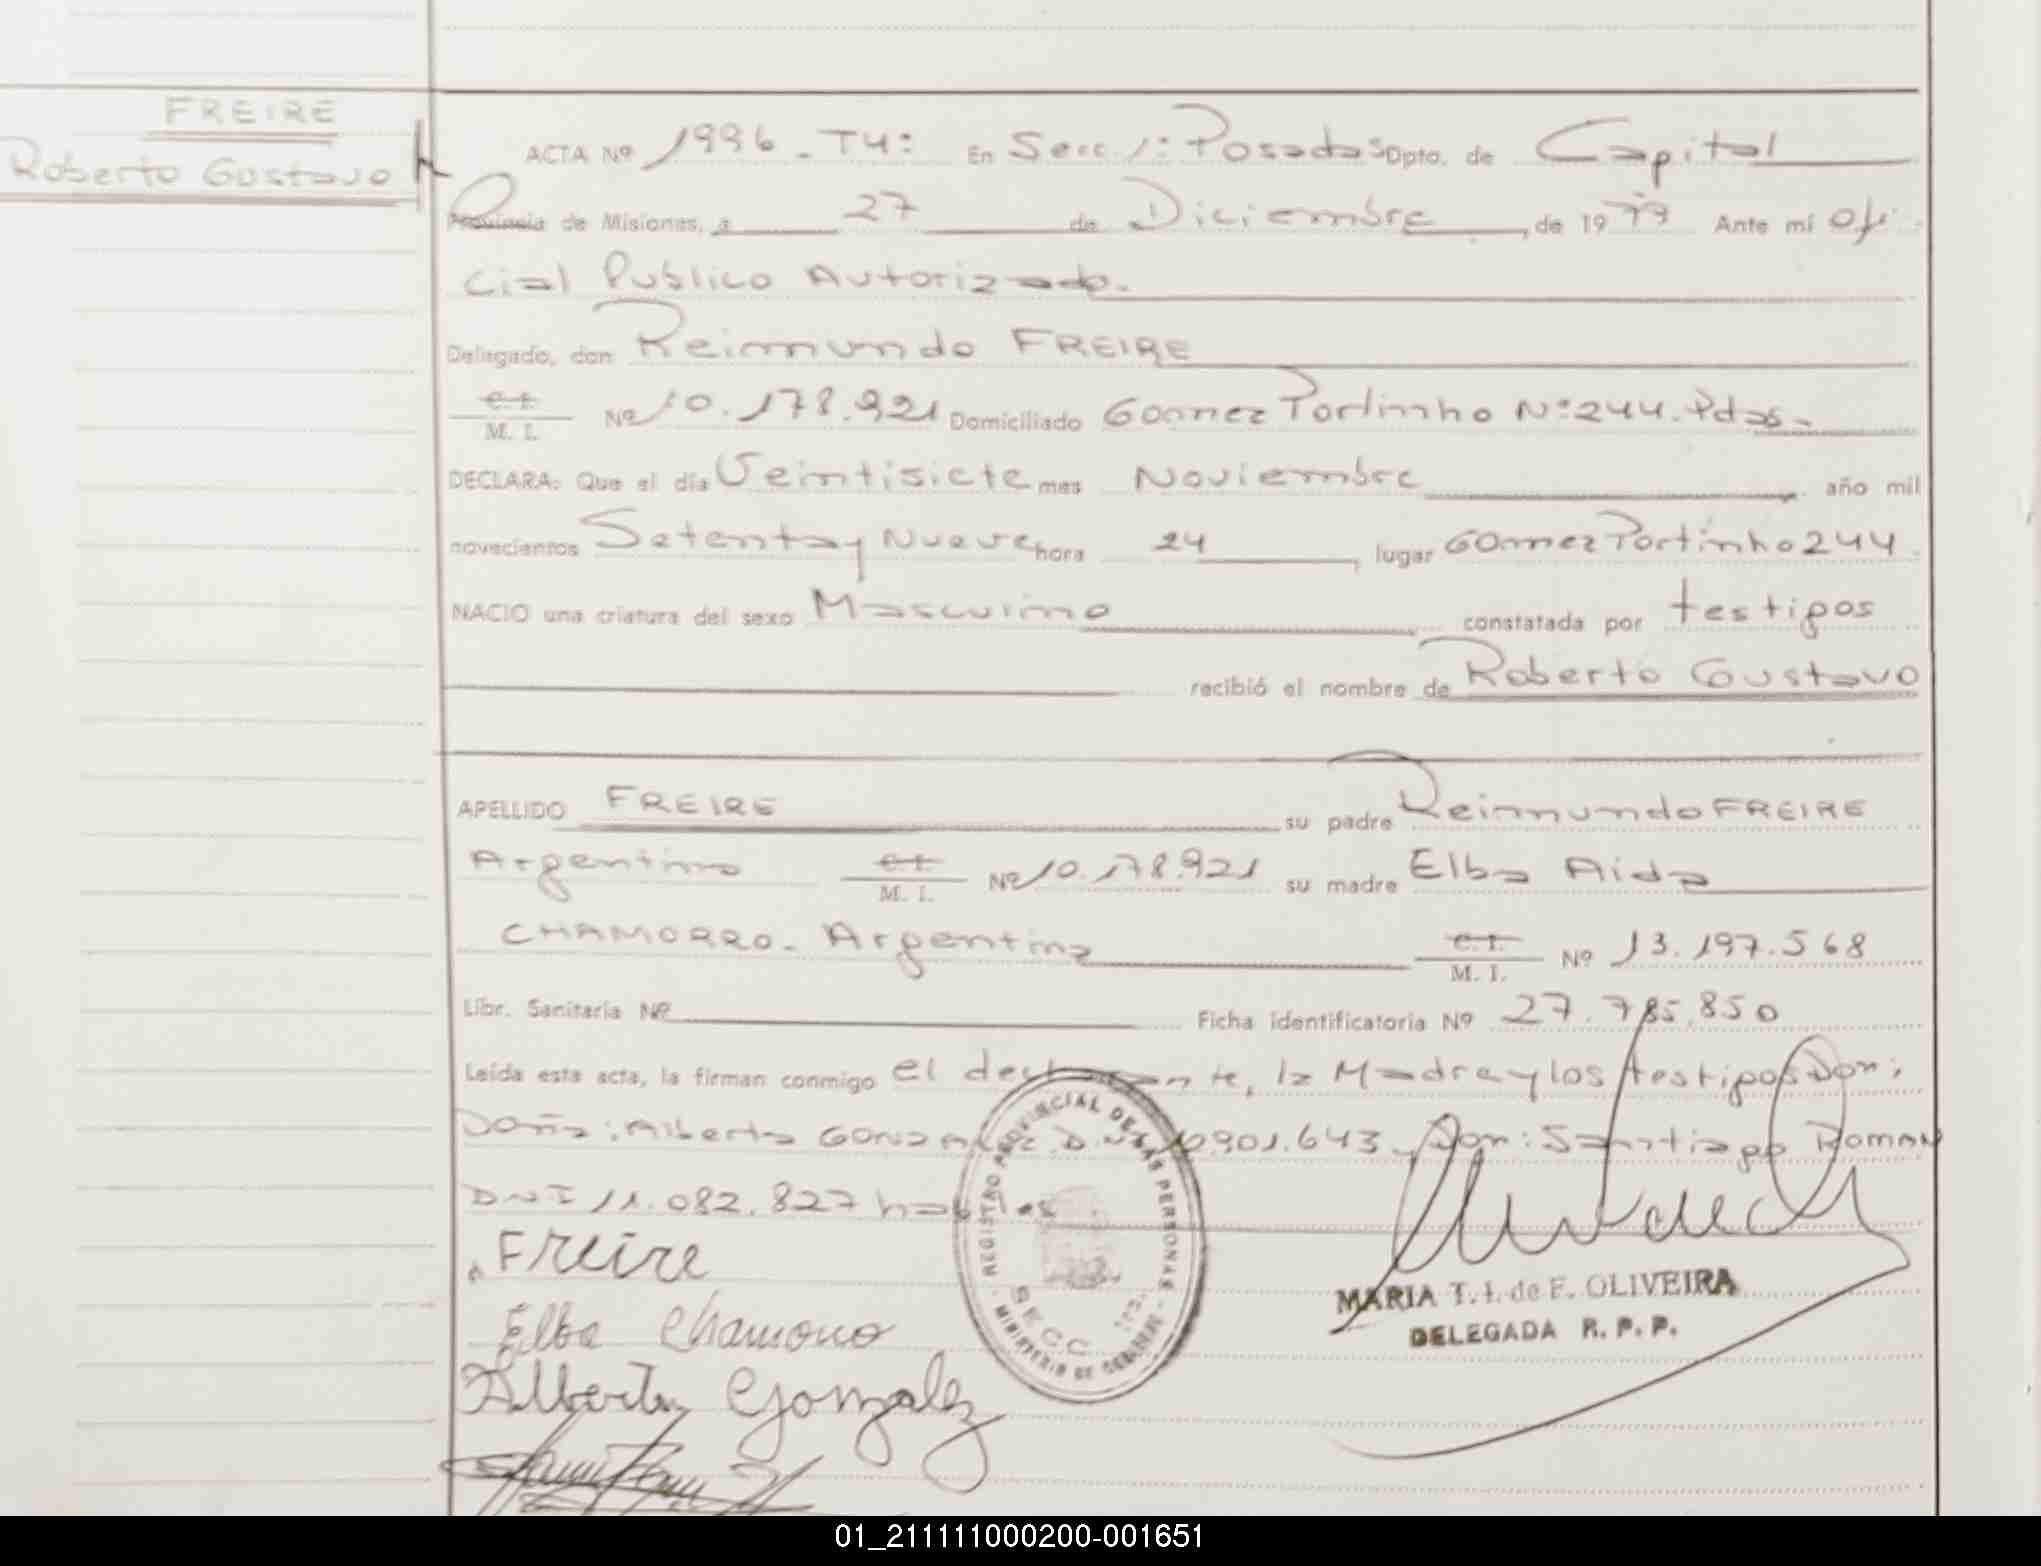 FREIRE
Roberto Gustavo
ACTA Nº 1996 - T4: En Secc 1: Posadas Dpto. de Capital
Provincia de Misiones, a 27 de Diciembre, de 1979 Ante mí Ofi
cial Publico Autorizado.
Delegado, don Reimundo FREIRE
C. I. M. I. Nº 10.178.921 Domiciliado Gomez Portinho Nº 244. Pdas-
DECLARA: Que el día Veintisiete mes Noviembre año mil
novecientos Setenta y Nueve hora 24, lugar Gomez Portinho 244
NACIO una criatura del sexo Masculino constatada por testigos
recibió el nombre de Roberto Gustavo
APELLIDO FREIRE su padre Reimundo FREIRE
Argentino C. I. M. I. Nº 10.178.921 su madre Elba Aida
CHAMORRO - Argentina C. I. M. I. Nº 13.197.568
Libr. Sanitaria Nº Ficha identificatoria Nº 27.785.850
Leída esta acta, la firman conmigo el declarante, la Madre y los testigos Don:
Doña: Alberta GONZALEZ. D.N.I. 10.901.643 y Don: Santiago Roman
DNI 11.082.827 habiles
Freire
Elba Chamorro
Alberta Gonzalez
REGISTRO PROVINCIAL DE LAS PERSONAS
SECC 1ra.
MINISTERIO DE GOBIERNO
MARIA T. I. de F. OLIVEIRA
DELEGADA R. P. P.
01_211111000200-001651